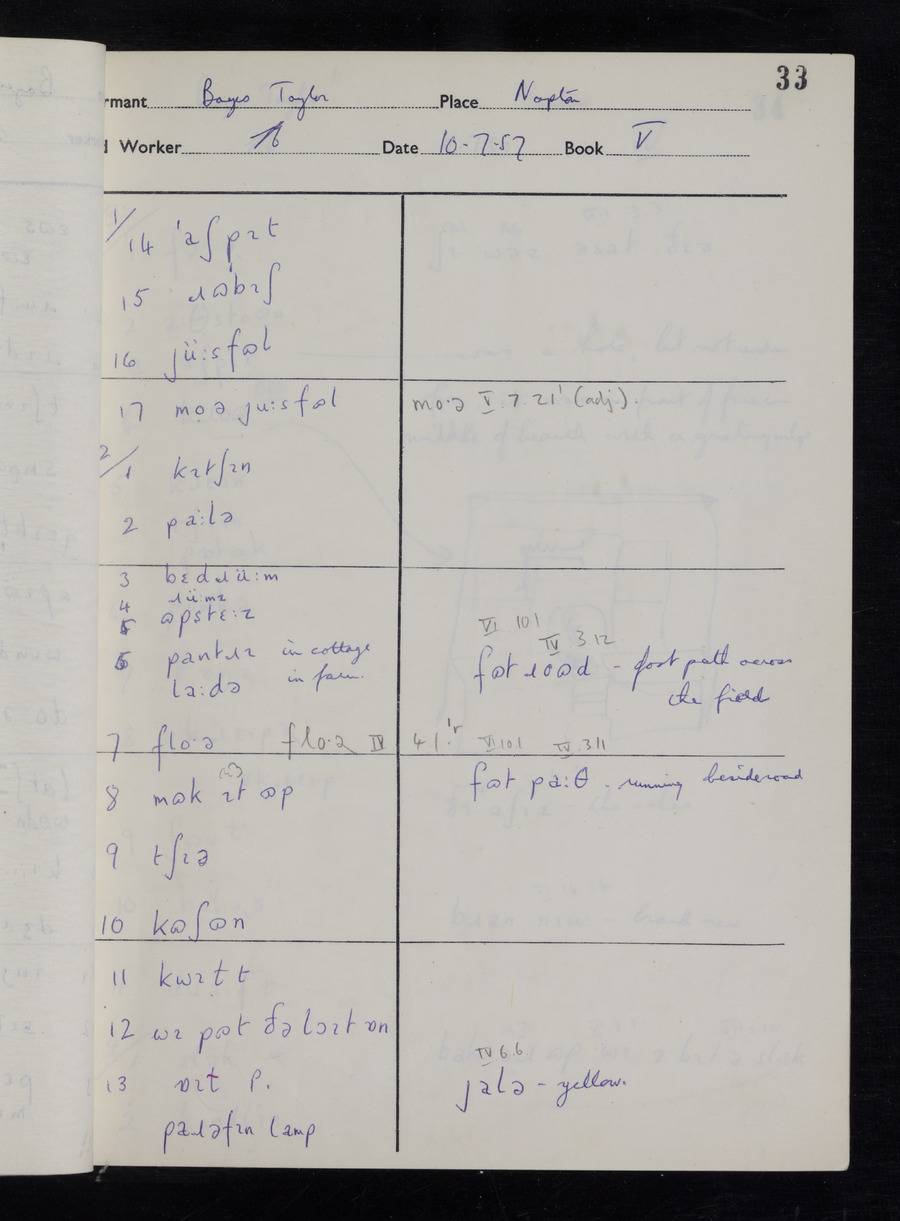 33
rmant Place Napton
Worker Date 10-7-57 Book V
1/14 'aʃpɪt
15 ɹɷbɪʃ
16 jü:sfɷl
17 moə ju:sfɷl mo·ə V.7 21' (adj).
2/1 kɪtʃɪn
2 pa:lə
3 bɛdɹü:m
4 ɹü:mz
5 ɷpstɛ:z
6 pantɹɪ in cottage
la:də in farm.
VI 10 1
IV 3.12
fɷt ɹoɷd - foot path across
the field
7 flo·ə flo·ə IV 41.'r VI 10.1 IV.3 11
8 mɷk ɪt ɷp
fɷt pa:θ - running beside road
9 tʃɪə
10 kɷʃɷn
11 kwɪtt
12 wɪ pɷt ðə lɔɪt ɒn
13 ɒɪt P.
paɹəfɪn lamp
IV 6.6
jalə - yellow.